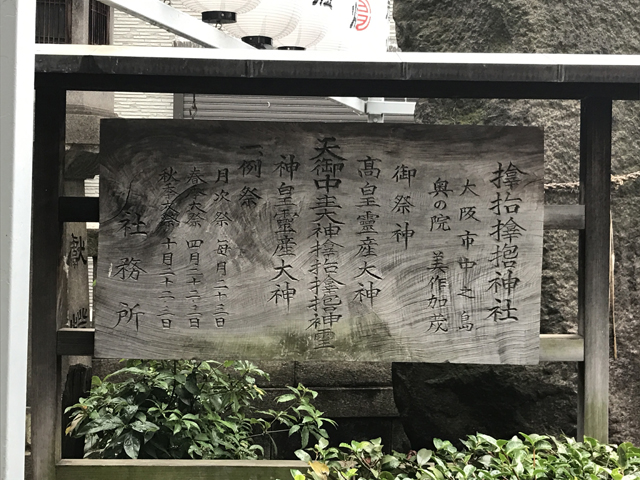 撑抬撑抱神社
大阪市中之島
奥の院 美作加茂
御祭神
高皇霊産大神
天御中主美神撑抬撑抱神霊
神皇霊産大神
例祭
月次祭 毎月二十三日
春季大祭 四月二十二・三日
秋季大祭 十月二十二・三日
社務所
献